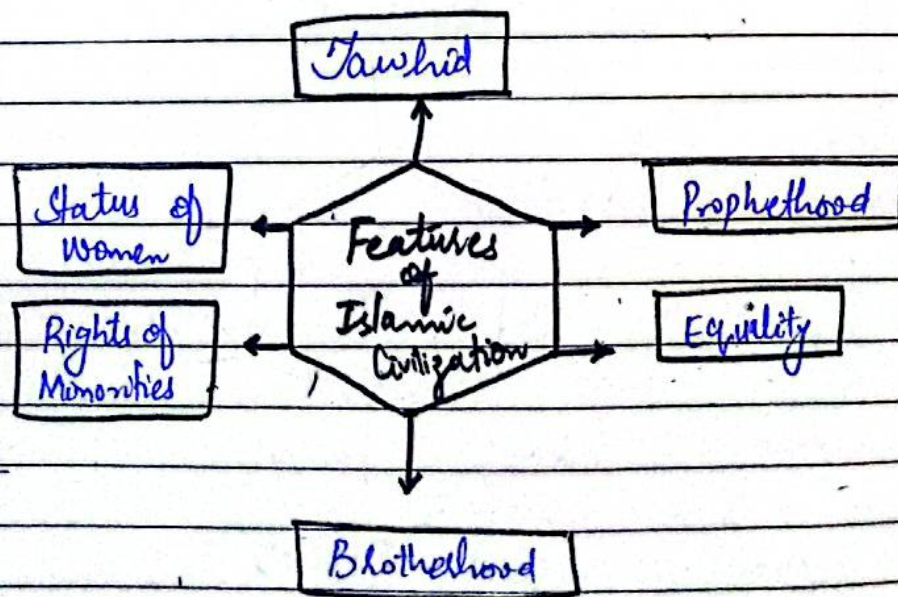 Tawhid
Status of
Women
Prophethood
Features
of
Islamic
Civilization
Rights of
Minorities
Equility
Brotherhood